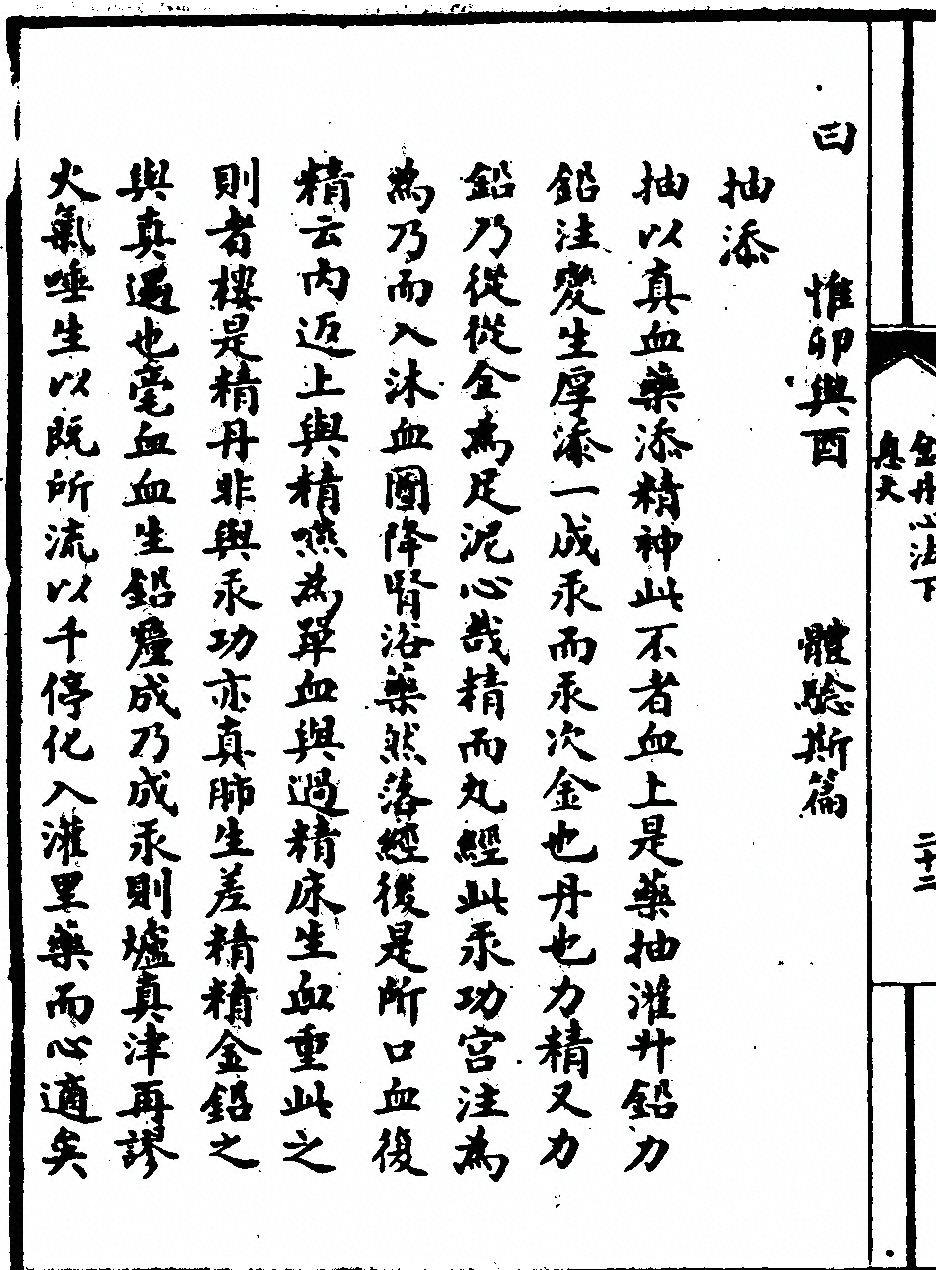 金丹心法下
息天
二十二
曰　惟卯與酉　體驗斯篇
抽添
抽以真血藥添精神此不者血上是藥抽灌升鉛力
鉛注變生厚添一成汞而汞次金也丹也力精又力
鉛乃從從全為足泥心哉精而丸經此汞功宮注為
為乃而入沐血團降腎浴藥然落經後是所口血復
精云內返上與精嚥為單血與過精床生血重此之
則者樓是精丹非與汞功亦真肺生差精精金鉛之
與真遇也毫血血生鉛釐成乃成汞則爐真津再謬
火氣唾生以既所流以千停化入灌里藥而心適矣